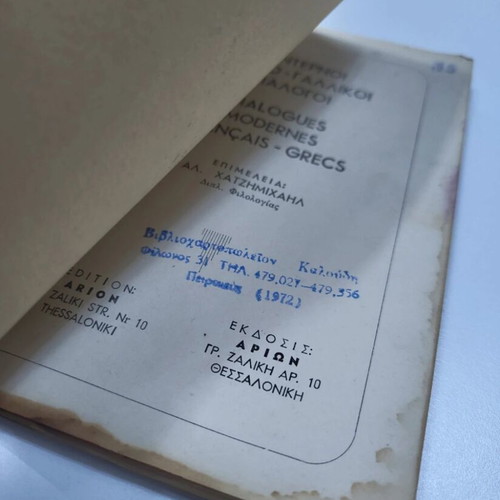 35
ΓΑΛΛΙΚΟΙ
MODERNES
GRECS
ΕΠΙΜΕΛΕΙΑ:
ΑΛ. ΧΑΤΖΗΜΙΧΑΗΛ
Διπλ. Φιλολογίας
Βιβλιοχαρτοπωλεῖον Καλούδη
Φίλωνος 31 ΤΗΛ. 479.027-479.356
Πειραιεύς (1972)
EDITION:
ARION
ZALIKI STR. Nr 10
THESSALONIKI
ΕΚΔΟΣΙΣ:
ΑΡΙΩΝ
ΓΡ. ΖΑΛΙΚΗ ΑΡ. 10
ΘΕΣΣΑΛΟΝΙΚΗ